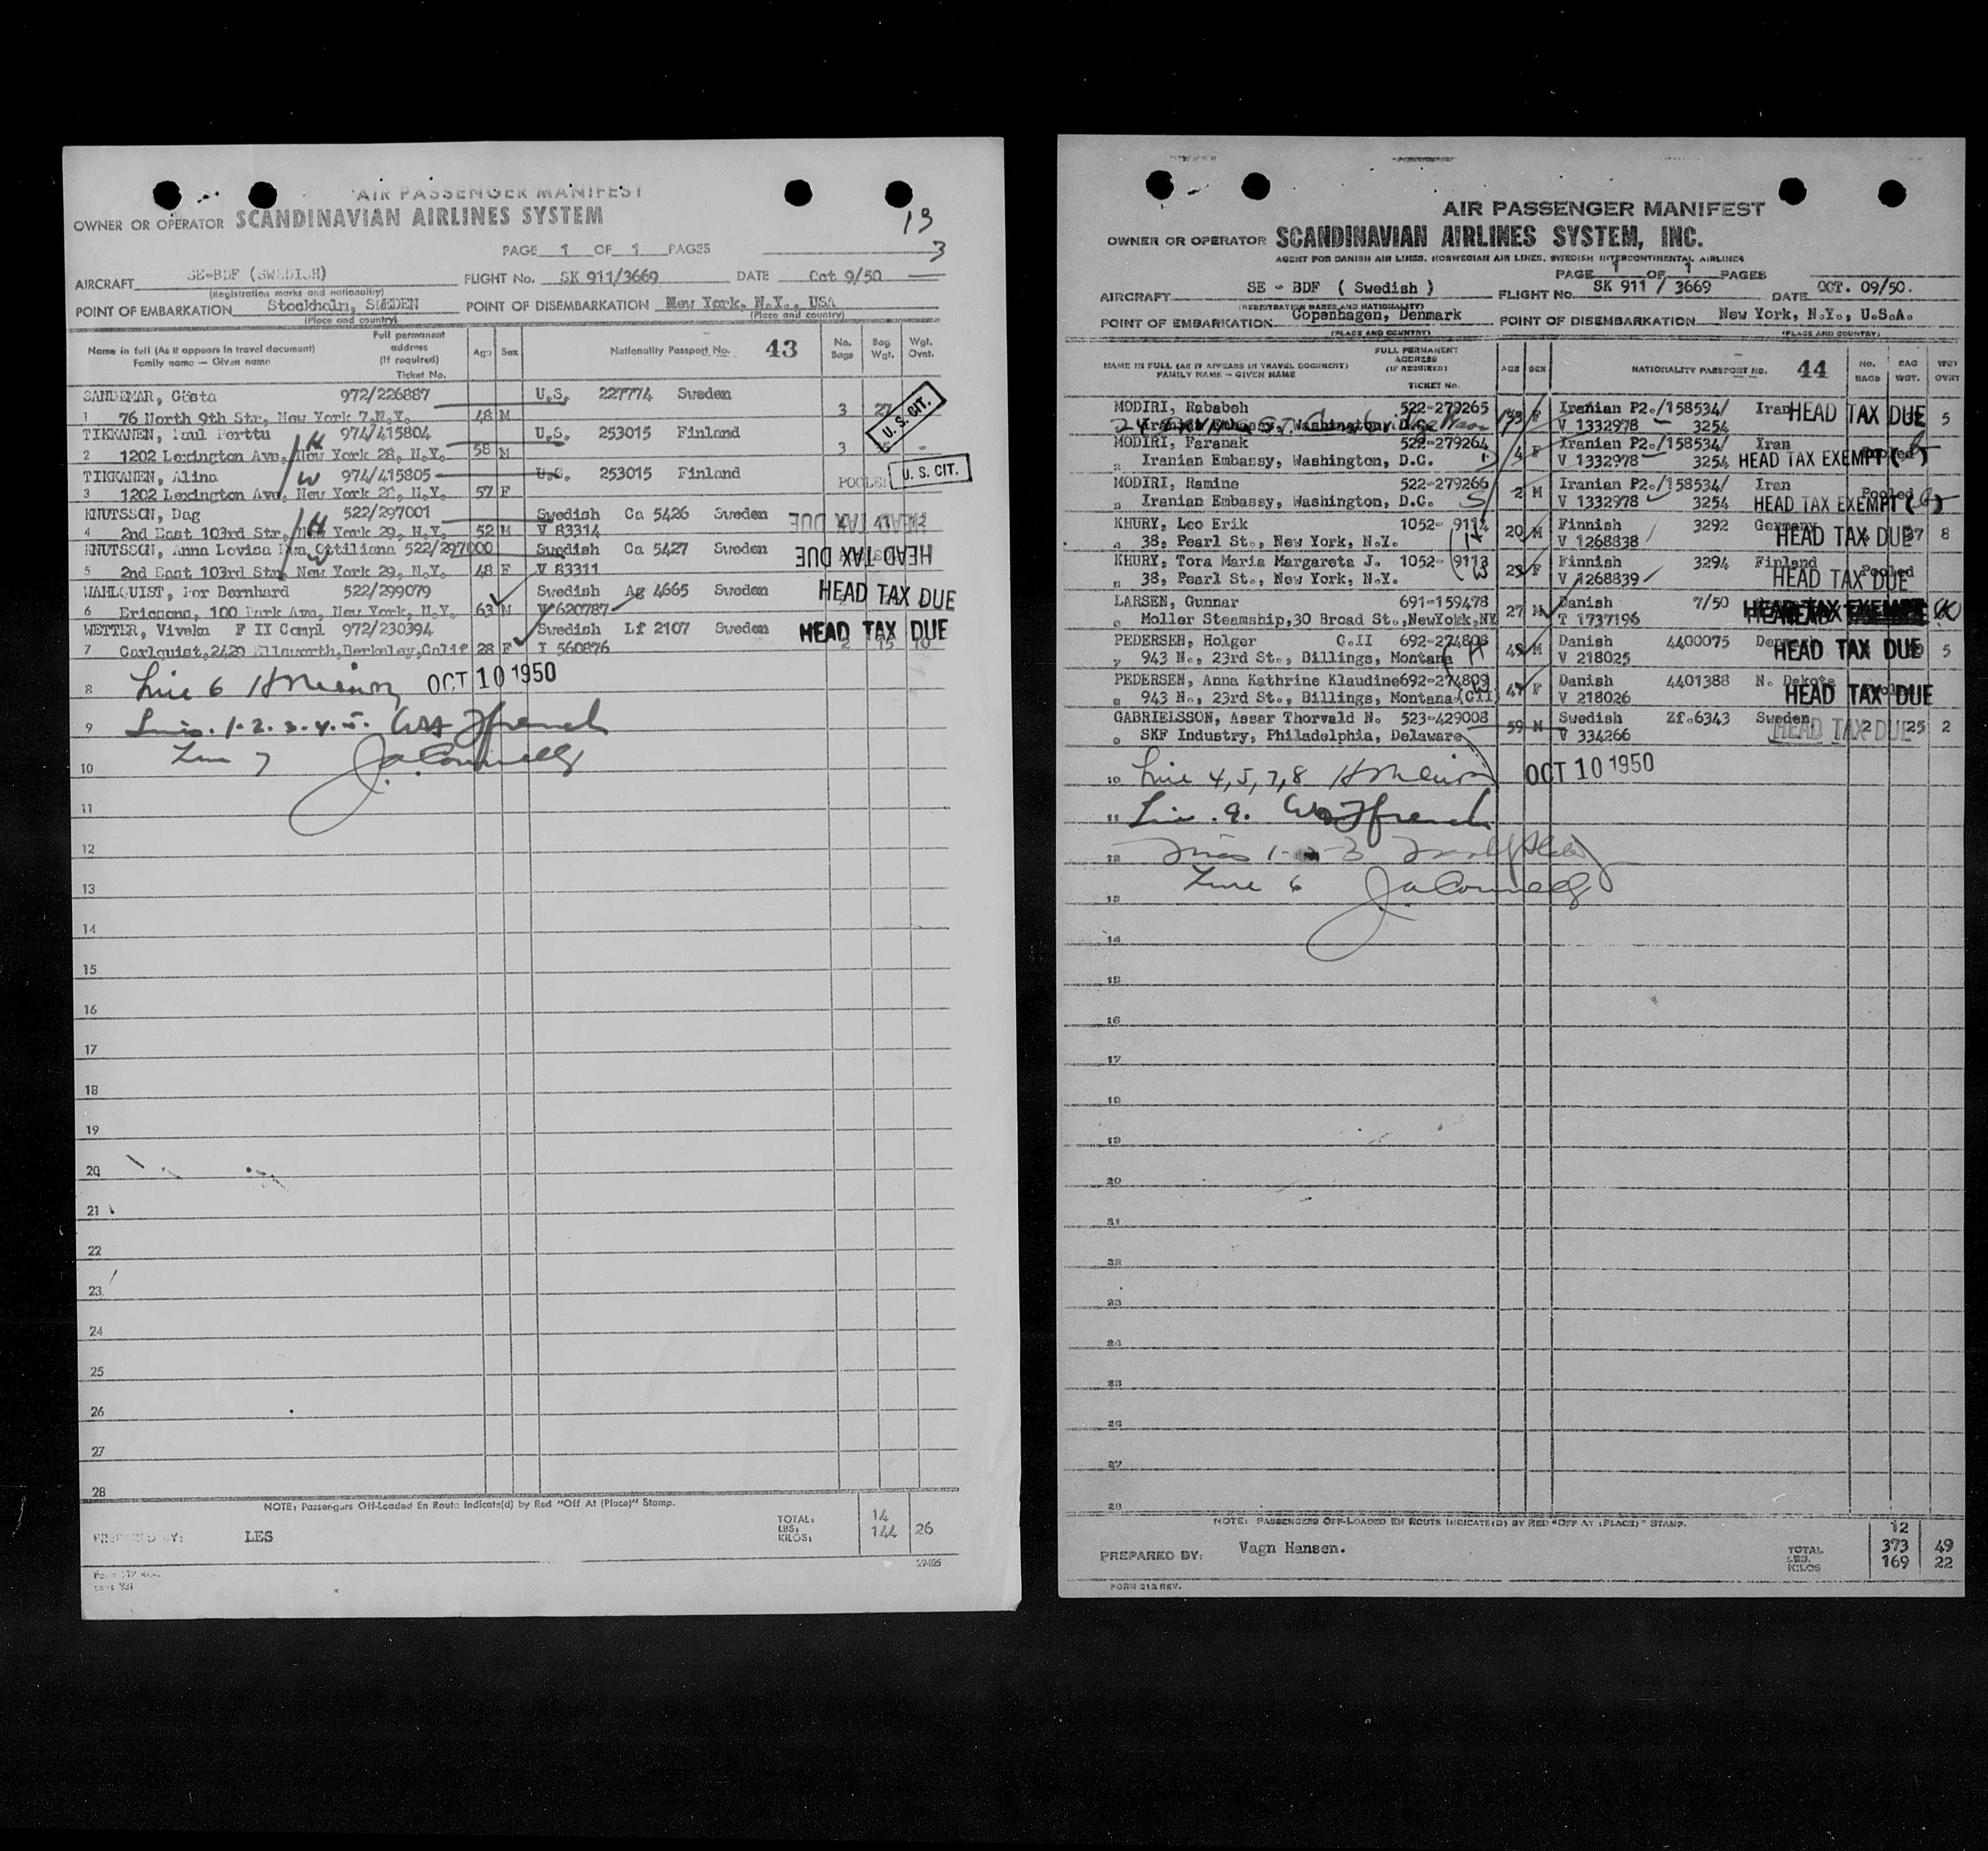 AIR PASSENGER MANIFEST
OWNER OR OPERATOR SCANDINAVIAN AIRLINES SYSTEM
13
PAGE 1 OF 1 PAGES
3
AIRCRAFT SE-BDF (SWEDISH) FLIGHT No. SK 911/3669 DATE Oct 9/50
(Registration marks and nationality)
POINT OF EMBARKATION Stockholm, SWEDEN POINT OF DISEMBARKATION New York, N.Y., USA
(Place and country) (Place and country)
Name in full (As it appears in travel document) Family name — Given name Full permanent address (If required) Ticket No. Age Sex Nationality Passport No. 43 No. Bags Bag Wgt. Wgt. Ovnt.
SANDEMAR, Gösta 972/226887 U.S. 227774 Sweden
1 76 North 9th Str, New York 7,N.Y. 48 M 3 27 U.S. CIT.
TIKKANEN, Paul Perttu 974/415804 U.S. 253015 Finland
2 1202 Lexington Ave, New York 28, N.Y. H 58 M 3 -
TIKKANEN, Alina 974/415805 U.S. 253015 Finland
3 1202 Lexington Ave, New York 28, N.Y. W 57 F POOLED U.S. CIT.
KNUTSSON, Dag 522/297001 Swedish Ca 5426 Sweden HEAD TAX DUE
4 2nd East 103rd Str, New York 29, N.Y. H 52 M V 83314
KNUTSSON, Anna Lovisa Eva Ottiliana 522/297000 Swedish Ca 5427 Sweden HEAD TAX DUE
5 2nd East 103rd Str, New York 29, N.Y. W 48 F V 83311
WAHLQUIST, Per Bernhard 522/299079 Swedish Ag 4665 Sweden HEAD TAX DUE
6 Ericsons, 100 Park Ave, New York, N.Y. 63 M V 620787
WETTER, Viveka F II Compl 972/230394 Swedish Lf 2107 Sweden HEAD TAX DUE
7 Carlquist,2420 Ellsworth,Berkeley,Calif 28 F I 560876 2 15 10
8 Line 6 OCT 10 1950
9 Lines. 1-2.3.4.5. French
Line 7 J.A. Connelly
10
11
12
13
14
15
16
17
18
19
20
21
22
23
24
25
26
27
28
NOTE: Passengers Off-Loaded En Route Indicate(d) by Red "Off At (Place)" Stamp.
PREPARED BY: LES
TOTAL: 14
LBS: KILOS: 144 26
29405
AIR PASSENGER MANIFEST
OWNER OR OPERATOR SCANDINAVIAN AIRLINES SYSTEM, INC.
AGENT FOR DANISH AIR LINES, NORWEGIAN AIR LINES, SWEDISH INTERCONTINENTAL AIRLINES
PAGE 1 OF 1 PAGES
AIRCRAFT SE - BDF ( Swedish ) FLIGHT No. SK 911 / 3669 DATE OCT. 09/50.
(REGISTRATION MARKS AND NATIONALITY)
POINT OF EMBARKATION Copenhagen, Denmark POINT OF DISEMBARKATION New York, N.Y., U.S.A.
(PLACE AND COUNTRY) (PLACE AND COUNTRY)
NAME IN FULL (AS IT APPEARS IN TRAVEL DOCUMENT) FAMILY NAME — GIVEN NAME FULL PERMANENT ADDRESS (IF REQUIRED) TICKET No. AGE SEX NATIONALITY PASSPORT NO. 44 NO. BAGS BAG WGT. WGT OVNT
MODIRI, Rababeh 522-279265 Iranian P2./158534/ Iran HEAD TAX DUE 5
Iranian Embassy, Washington, D.C. 33 F V 1332978 3254
MODIRI, Faranak 522-279264 4 F Iranian P2./158534/ Iran
2 Iranian Embassy, Washington, D.C. V 1332978 3254 HEAD TAX EXEMPT
MODIRI, Ramine 522-279266 2 M Iranian P2./158534/ Iran Pooled
3 Iranian Embassy, Washington, D.C. V 1332978 3254 HEAD TAX EXEMPT
KHURY, Leo Erik 1052- 9114 20 M Finnish 3292 Germany
4 38, Pearl St., New York, N.Y. (H V 1268838 HEAD TAX DUE 8
KHURY, Tora Maria Margareta J. 1052- 9113 23 F Finnish 3294 Finland Pooled
5 38, Pearl St., New York, N.Y. (W V 1268839 HEAD TAX DUE
LARSEN, Gunnar 691-159478 27 M Danish 7/50 HEAD TAX EXEMPT
6 Moller Steamship,30 Broad St.,NewYork,NY T 1737196
PEDERSEN, Holger C.II 692-274808 M Danish 4400075 Denmark HEAD TAX DUE 5
7 943 N., 23rd St., Billings, Montana H V 218025
PEDERSEN, Anna Kathrine Klaudine 692-274809 47 F Danish 4401388 N. Dakota
8 943 N., 23rd St., Billings, Montana (CII) V 218026 HEAD TAX DUE
GABRIELSSON, Assar Thorvald N. 523-429008 59 M Swedish Zf.6343 Sweden
9 SKF Industry, Philadelphia, Delaware V 334266 HEAD TAX DUE 2 25 2
10 Line 4,5,7,8 OCT 10 1950
11 Line .9. French
12 Lines 1- 3
Line 6 J.A. Connelly
13
14
15
16
17
18
19
20
21
22
23
24
25
26
27
28
NOTE: PASSENGERS OFF-LOADED EN ROUTE INDICATE(D) BY RED "OFF AT (PLACE)" STAMP.
PREPARED BY: Vagn Hansen.
12
TOTAL LBS. 373 49
KILOS 169 22
FORM 212 REV.